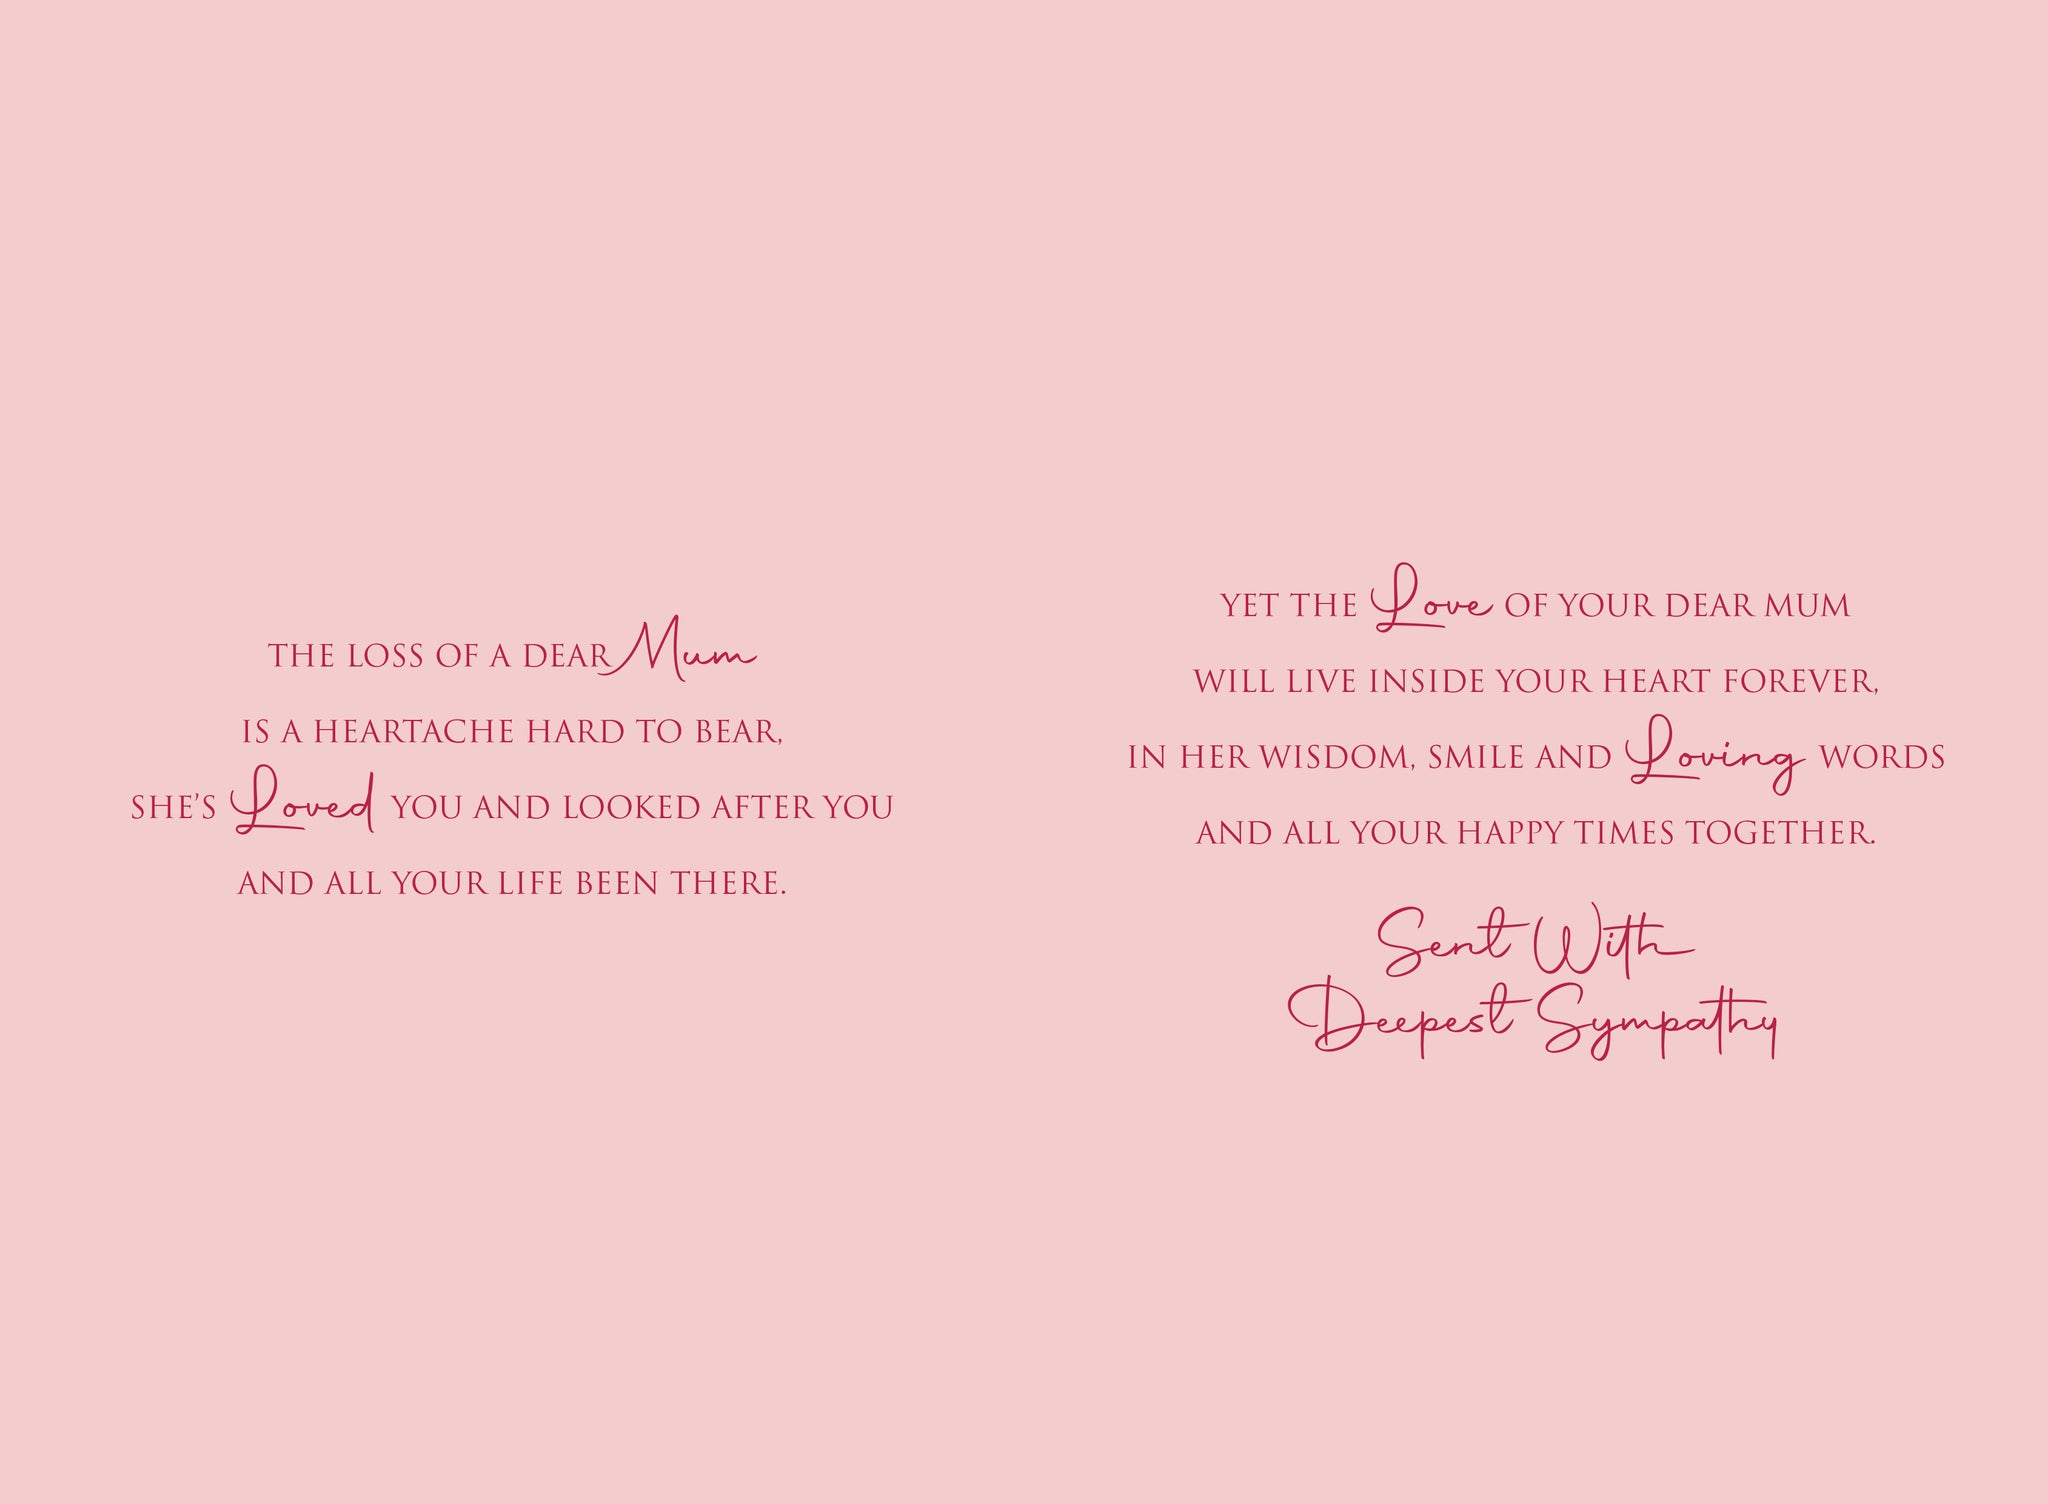 THE LOSS OF A DEAR Mum
IS A HEARTACHE HARD TO BEAR,
SHE’S Loved YOU AND LOOKED AFTER YOU
AND ALL YOUR LIFE BEEN THERE.
YET THE Love OF YOUR DEAR MUM
WILL LIVE INSIDE YOUR HEART FOREVER,
IN HER WISDOM, SMILE AND Loving WORDS
AND ALL YOUR HAPPY TIMES TOGETHER.
Sent With
Deepest Sympathy